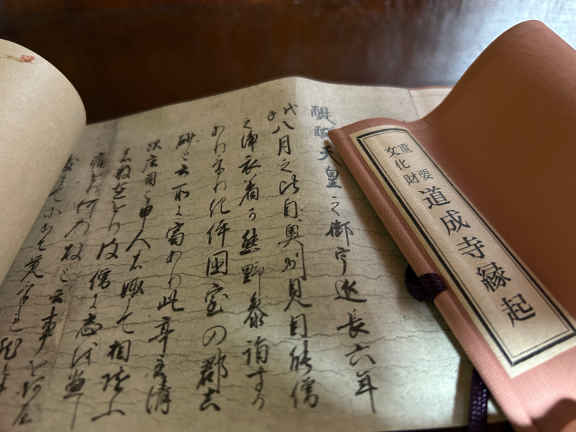 重要
文化財
道成寺縁起
醍醐天皇之御宇延長六年
八月之比自奥州見目能僧
之浄衣着か熊野参詣する
ありけり紀伊国室の郡真
砂と云所に宿あり此亭主清
次庄司と申人の娵にて相随ふ
彼僧に志を尽
何の故と云事を